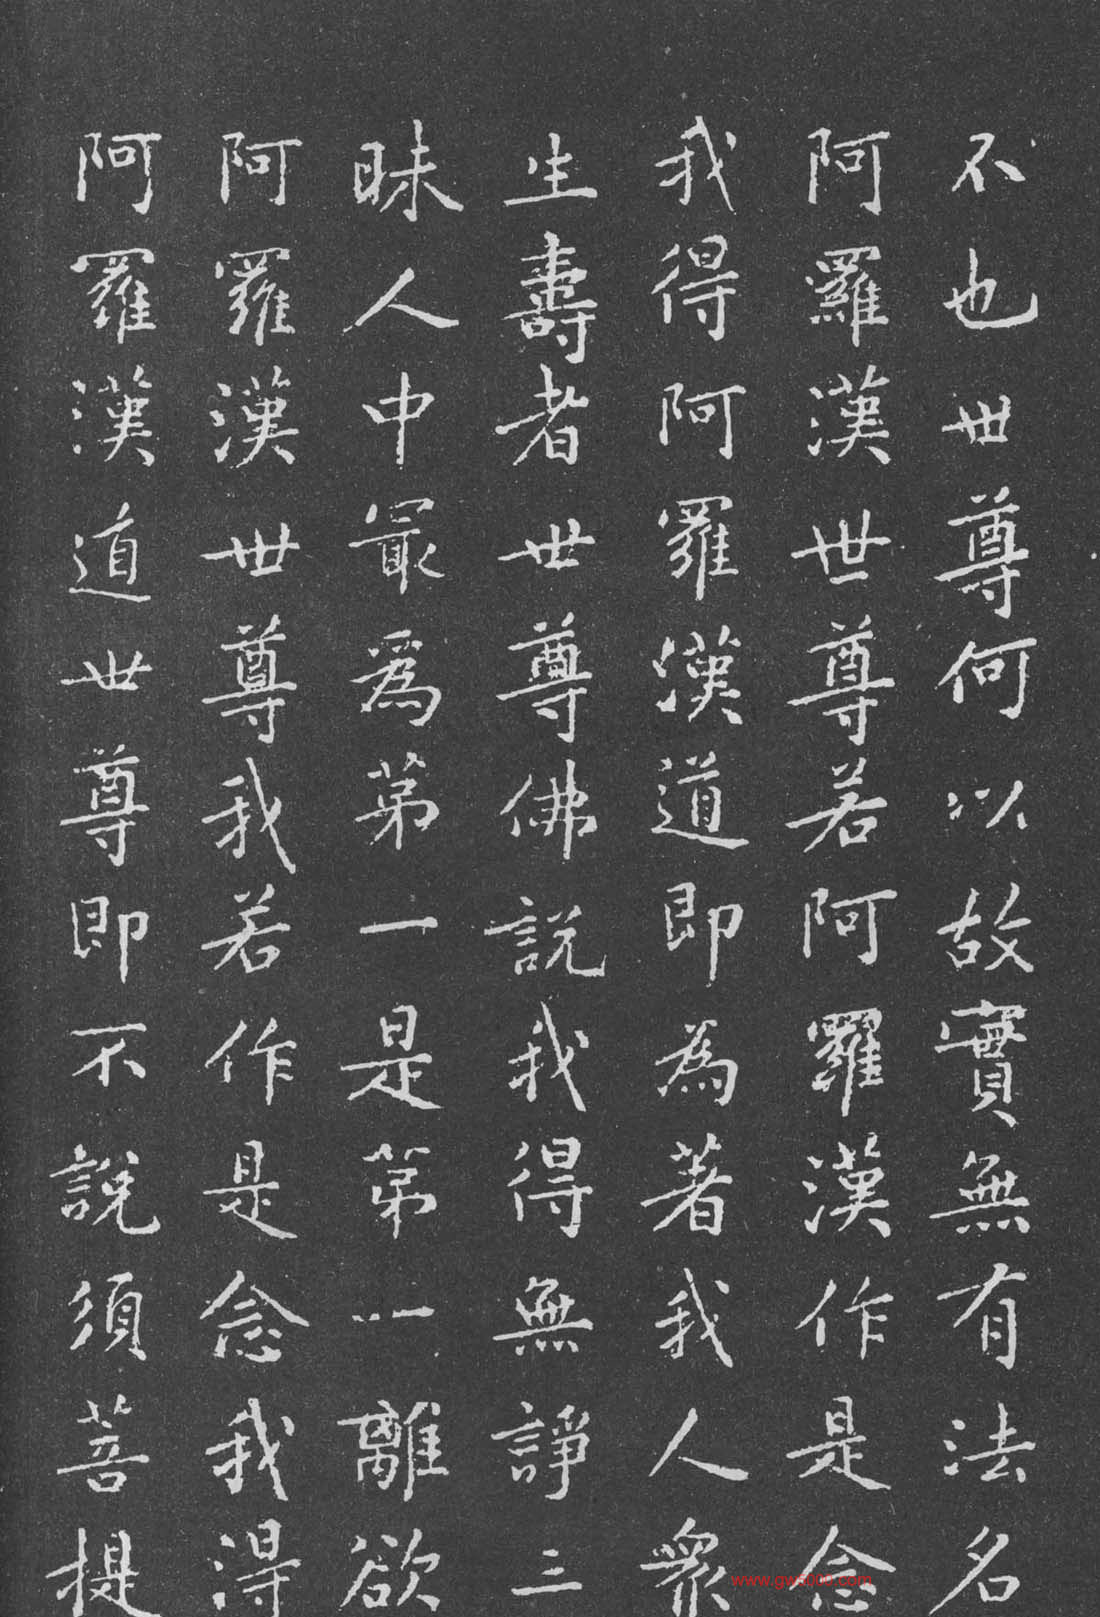 不也世尊何以故實無有法名
阿羅漢世尊若阿羅漢作是念
我得阿羅漢道即為著我人衆
生壽者世尊佛說我得無諍三
昧人中最為第一是第一離欲
阿羅漢世尊我若作是念我得
阿羅漢道世尊即不說須菩提
www.gw5000.com